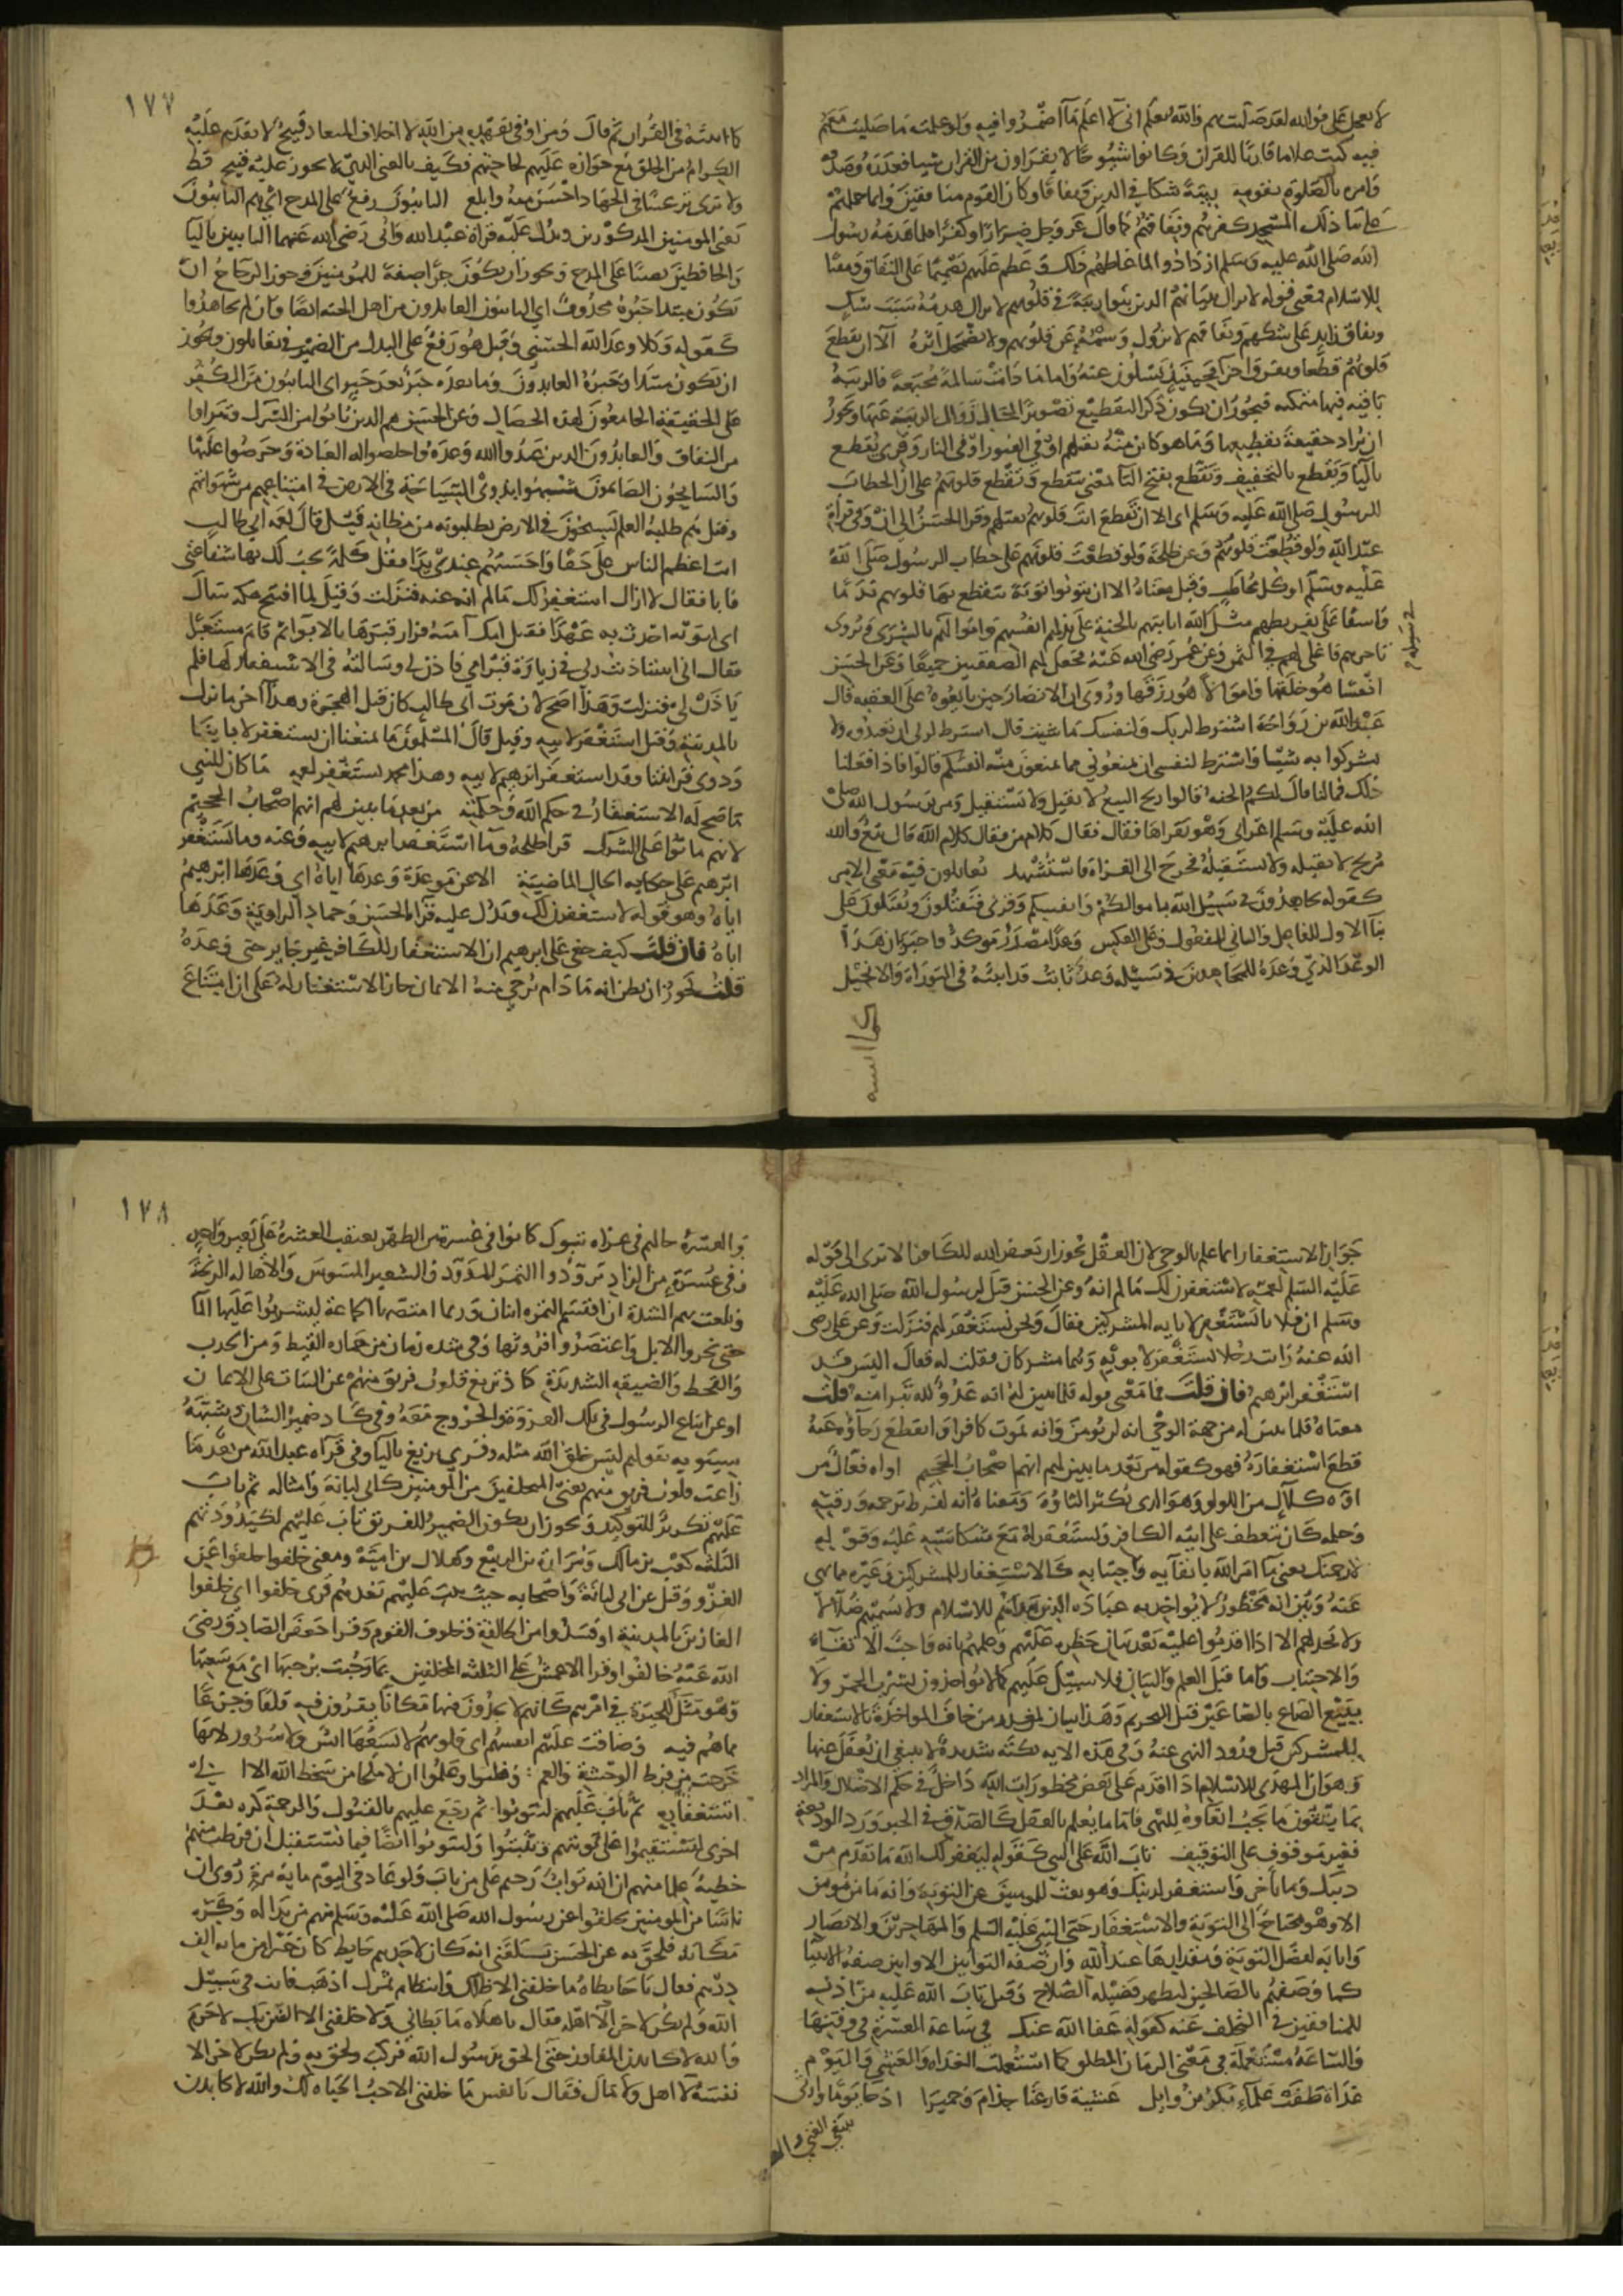 لا تعجل على فوالله لقد صليت بهم والله يعلم اني لا اعلم ما اضمروا فيه ولو علمت ما صليت معهم
فيه كنت غلاما قارئا للقران وكانوا شيوخا لا يقراون من القران شيا فعذره وصدقه
وامره بالصلوة بقومه ريبة شكا في الدين ونفاقا وكان القوم منافقين وانما حملهم
على بنا ذلك المسجد كفرهم ونفاقهم كما قال عز وجل ضرارا وكفرا فلما هدمه رسول
الله صلى الله عليه وسلم ازدادوا لما غاظهم ذلك وعظم عليهم تصميما على النفاق ومقتا
للاسلام فمعنى قوله لا يزال بنيانهم الذي بنوا ريبة في قلوبهم لا يزال هدمه سبب شك
ونفاق زايد على شكهم ونفاقهم لا يزول وسمه عن قلوبهم ولا يضمحل اثره الا ان تقطع
قلوبهم قطعا وتفرق اجزا فحينئذ يسلون عنه واما ما دامت سالمة مجتمعة فالريبة
باقيه فيها متمكنه فيجوز ان يكون ذكر التقطيع تصويرا لحال زوال الريبة عنها ويجوز
ان يراد حقيقة تقطيعها وما هو كاين منه بقتلهم او في القبور او في النار وقرى يقطع
باليا وتقطع بالتخفيف وتقطع بفتح التا بمعنى تتقطع وتقطع قلوبهم على ان الخطاب
للرسول صلى الله عليه وسلم اي الا ان تقطع انت قلوبهم بقتلهم وقرا الحسن الى ان وفي قراة
عبد الله ولو قطعت قلوبهم وعن طلحة ولو قطعت قلوبهم على خطاب الرسول صلى الله
عليه وسلم او كل مخاطب وقيل معناه الا ان يتوبوا توبة تتقطع بها قلوبهم ندما
واسفا على تفريطهم مثل الله اثابتهم بالجنة على بذلهم انفسهم واموالهم بالشرى وروى
تاجرهم فاغلى لهم في الثمن وعن عمر رضي الله عنه فجعل لهم الصفقتين جميعا وعن الحسن
انفسا هو خلقها واموالا هو رزقها وروى ان الانصار حين بايعوه على العقبه قال
عبد الله بن رواحة اشترط لربك ولنفسك ما شيت قال اشترط لربي ان تعبدوه ولا
تشركوا به شيا واشترط لنفسي ان تمنعوني مما تمنعون منه انفسكم قالوا فاذا فعلنا
ذلك فما لنا قال لكم الجنه قالوا ربح البيع لا نقيل ولا نستقيل ومر برسول الله صلى
الله عليه وسلم اعرابي وهو يقراها فقال كلام من فقال كلام الله قال بيع والله
مربح لا نقيله ولا نستقيله فخرج الى الغزاة فاستشهد يقاتلون فيه معنى الامر
كقوله تجاهدون في سبيل الله باموالكم وانفسكم وقرى فيقتلون ويقتلون على
بنا الاول للفاعل والثاني للمفعول وعلى العكس وعدا مصدر موكد واخبر بان هذا
الوعد الذي وعده للمجاهدين في سبيله وعد ثابت قد اثبته في التوراة والانجيل
كما اثبته
١٧٧
كما اثبته في القران ثم قال ومن اوفى بعهده من الله لان اخلاف الميعاد قبيح لا يقدم عليه
الكرام من الخلق مع جوازه عليهم لحاجتهم فكيف بالغني الذي لا يجوز عليه قبيح قط
ولا ترى ترغيبا في الجهاد احسن منه وابلغ التايبون رفع على المدح اي هم التايبون
يعني المومنين المذكورين ويدل عليه قراة عبد الله وابي رضي الله عنهما التايبين باليا
والحافظين نصبا على المدح ويجوز ان يكون جرا صفة للمومنين وجوز الزجاج ان
يكون مبتدا خبره محذوف اي التايبون العابدون من اهل الجنه ايضا وان لم يجاهدوا
كقوله وكلا وعد الله الحسنى وقيل هو رفع على البدل من الضمير في يقاتلون ويجوز
ان يكون مبتدا وخبره العابدون وما بعده خبر بعد خبر اي التايبون من الكفر
على الحقيقة الجامعون لهذه الخصال وعن الحسن هم الذين تابوا من الشرك وتبراوا
من النفاق والعابدون الذين عبدوا الله وحده واخلصوا له العبادة وحرصوا عليها
والسايحون الصايمون شبهوا بذوي السياحة في الارض في امتناعهم من شهواتهم
وقيل هم طلبة العلم يسيحون في الارض يطلبونه من مظانه قيل قال لعمه ابي طالب
انت اعظم الناس علي حقا واحسنهم عندي يدا فقل كلمة تجب لك بها شفاعتي
فابا فقال لا ازال استغفر لك ما لم انه عنه فنزلت وقيل لما افتتح مكه سال
اي ابويه احدث به عهدا فقيل امك آمنة فزار قبرها بالابواء ثم قام مستعبرا
فقال اني استاذنت ربي في زيارة قبر امي فاذن لي وسالته في الاستغفار لها فلم
ياذن لي فنزلت وهذا اصح لان موت ابي طالب كان قبل الهجرة وهذا آخر ما نزل
بالمدينة وقيل استغفر لابيه وقيل قال المسلمون ما يمنعنا ان نستغفر لابائنا
وذوي قرابتنا وقد استغفر ابرهيم لابيه وهذا محمد يستغفر لعمه ما كان للنبي
ما صح له الاستغفار في حكم الله وحكمته من بعد ما تبين لهم انهم اصحاب الجحيم
لانهم ماتوا على الشرك قرا طلحة وما استغفر ابرهيم لابيه وعنه وما يستغفر
ابرهيم على حكايه الحال الماضية الا عن موعدة وعدها اياه اي وعدها ابرهيم
اباه وهو قوله لاستغفرن لك ويدل عليه قراة الحسن وحماد الراوية وعدها
اباه فان قلت كيف خفي على ابرهيم ان الاستغفار للكافر غير جايز حتى وعده
قلت يجوز ان يظن انه ما دام يرجى منه الايمان جاز الاستغفار له على ان امتناع
جواز الاستغفار انما علم بالوحي لان العقل يجوز ان يغفر الله للكافر الا ترى الى قوله
عليه السلم لعمه لاستغفرن لك ما لم انه وعن الحسن قيل لرسول الله صلى الله عليه
وسلم ان فلانا يستغفر لابايه المشركين فقال ونحن نستغفر لهم فنزلت وعن علي رضي
الله عنه رايت رجلا يستغفر لابويه وهما مشركان فقلت له فقال اليس قد
استغفر ابرهيم فان قلت فما معنى قوله فلما تبين له انه عدو لله تبرا منه قلت
معناه فلما تبين له من جهة الوحي انه لن يومن وانه يموت كافرا وانقطع رجاؤه عنه
قطع استغفاره فهو كقوله من بعد ما تبين لهم انهم اصحاب الجحيم اواه فعال من
اوه كلآل من اللولو وهو الذي يكثر التاوه ومعناه انه لفرط ترحمه ورقته
وحلمه كان يتعطف على ابيه الكافر ويستغفر له مع شكاسته عليه وقوله
لارجمنك يعني ما امر الله باتقايه واجتنابه كالاستغفار للمشركين وغيره مما نهي
عنه وبين انه محظور لا يواخذ به عباده الذين هداهم للاسلام ولا يسميهم ضلالا
ولا يخذلهم الا اذا اقدموا عليه بعد بيان حظره عليهم وعلمهم بانه واجب الاتقاء
والاجتناب واما قبل العلم والبيان فلا سبيل عليهم كما لا يواخذون بشرب الخمر ولا
ببيع الصاع بالصاعين قبل التحريم وهذا بيان لعذر من خاف المواخذة بالاستغفار
للمشركين قبل ورود النهي عنه وفي هذه الايه شديدة لا ينبغي ان يغفل عنها
وهو ان المهدي للاسلام اذا اقدم على بعض محظورات الله داخل في حكم الاضلال والمراد
بما يتقون ما يجب اتقاؤه للنهي فاما ما يعلم بالعقل كالصدق في الخبر ورد الوديعة
فغير موقوف على التوقيف تاب الله على النبي كقوله ليغفر لك الله ما تقدم من
ذنبك وما تاخر واستغفر لذنبك وهو بعث للمومنين على التوبة وانه ما من مومن
الا وهو محتاج الى التوبة والاستغفار حتى النبي عليه السلم والمهاجرين والانصار
وابانة لفضل التوبة ومقدارها عند الله وان صفة التوابين الاوابين صفة الانبيا
كما وصفهم بالصالحين ليظهر فضيلة الصلاح وقيل تاب الله عليه من اذنه
للمنافقين في التخلف عنه كقوله عفا الله عنك في ساعة العسرة في وقتها
والساعة مستعملة في معنى الزمان المطلق كما استعملت الغداة والعشي واليوم
غداة طفت علماء بكر بن وايل عشية قارعنا جذام وحميرا اذا جا يوما وارثي
يبتغي الغنى والعسرة
١٧٨
والعسرة حالهم في غزاة تبوك كانوا في عسرة من الظهر يعتقب العشرة على بعير واحد
وفي عسرة من الزاد تزودوا التمر المدود والشعير المسوس والاهالة الزنخة
وبلغت بهم الشدة ان اقتسم التمرة اثنان وربما امتصها الجماعة ليشربوا عليها الما
حتى نحروا الابل واعتصروا فروثها وفي شدة زمان من حمارة القيظ ومن الجدب
والقحط والضيقة الشديدة كاد تزيغ قلوب فريق منهم عن الثبات على الايمان
او عن اتباع الرسول في تلك الغزوة والخروج معه وفي كاد ضمير الشان وشبهه
سيبويه بقولهم ليس خلق الله مثله وقري يزيغ باليا وفي قراه عبد الله من بعد ما
زاغت قلوب فريق منهم يعني المتخلفين من المومنين كابي لبابة وامثاله ثم تاب
عليهم تكرير للتوكيد ويجوز ان يكون الضمير للفريق تاب عليهم لكيدودتهم
الثلثة كعب بن مالك ومرارة بن الربيع وهلال بن امية ومعنى خلفوا خلفوا عن
الغزو وقيل عن ابي لبابة واصحابه حيث تيب عليهم بعدهم قرى خلفوا اي خلفوا
الغازين بالمدينة او فسدوا من الخالفة وخلوف الفم وقرا جعفر الصادق رضي
الله عنه خالفوا وقرا الاعمش على الثلثة المخلفين بما رحبت برحبها اي مع سعتها
وهو مثل للحيرة في امرهم كانهم لا يجدون فيها مكانا يقرون فيه قلقا وجزعا
مما هم فيه وضاقت عليهم انفسهم اي قلوبهم لا يسعها انس ولا سرور لانها
حرجت من فرط الوحشة والغم وظنوا وعلموا ان لا ملجا من سخط الله الا الى
استغفاره ثم تاب عليهم ليتوبوا ثم رجع عليهم بالقبول والرحمة كرة بعد
اخرى ليستقيموا على توبتهم ويثبتوا وليتوبوا ايضا فيما يستقبل ان فرطت منهم
خطية علما منهم ان الله تواب رحيم على من تاب ولو عاد في اليوم ماية مرة روي ان
ناسا من المومنين تخلفوا عن رسول الله صلى الله عليه وسلم منهم من بدا له وكره
مكانه فلحق به عن الحسن بلغني انه كان لاحدهم حايط كان خيرا من ماية الف
درهم فقال يا حايطاه ما خلفني الا ظلك وانتظام ثمرك اذهب فانت في سبيل
الله ولم يكن لاخر الا اهله فقال يا اهلاه ما بطاني ولا خلفني الا الضن بك لا جرم
والله لاكابدن المفاوز حتى الحق برسول الله فركب ولحق به ولم يكن لاخر الا
نفسه لا اهل ولا مال فقال يا نفس ما خلفني الا حب الحياة لك والله لاكابدن